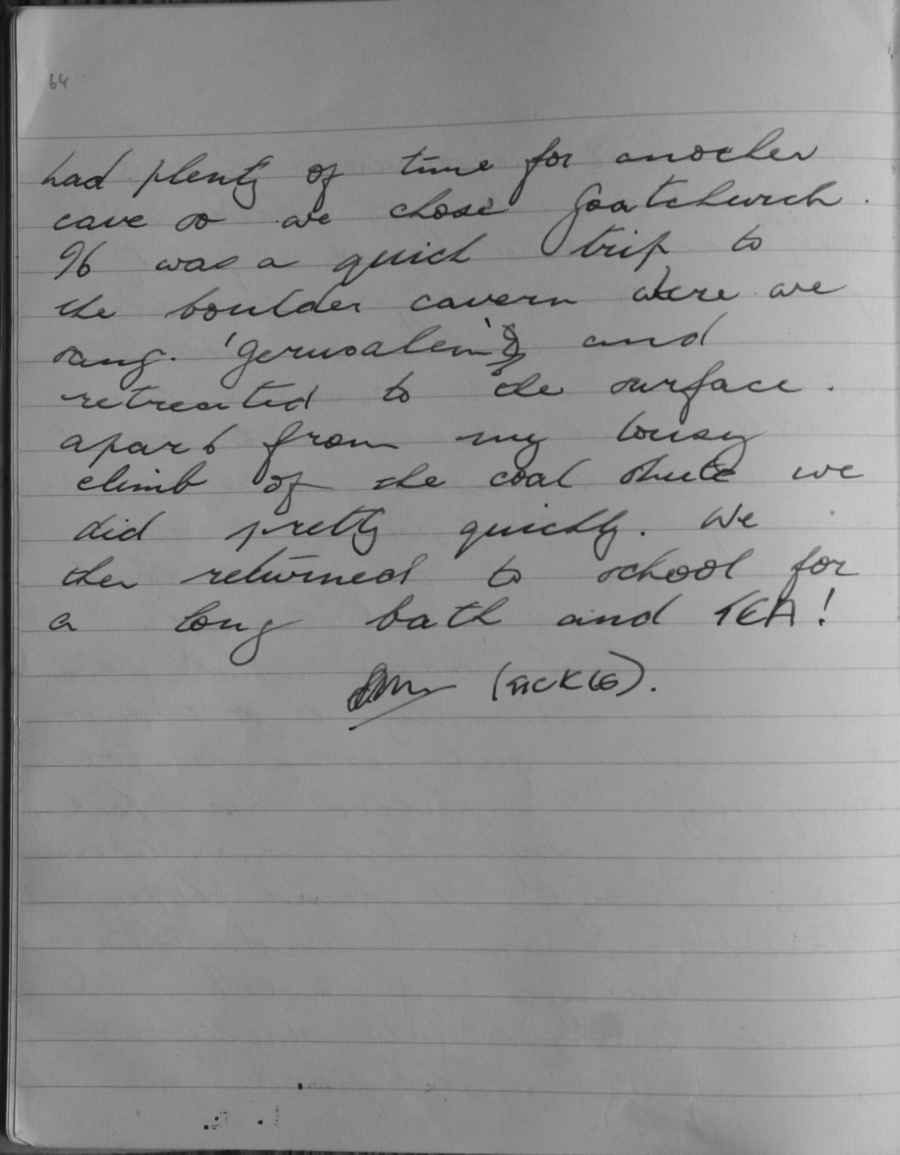 64
had plenty of time for another
cave so we chose Goatchurch.
It was a quick trip to
the boulder cavern where we
sang. 'Jerusalem' and
retreated to the surface.
apart from my lousy
climb of the coal shute we
did pretty quickly. We
then returned to school for
a long bath and TEA!